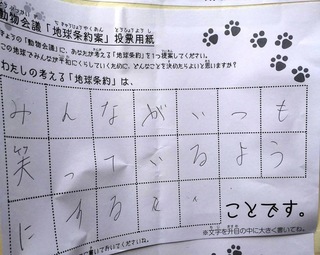 動物会議「地球条約案」投票用紙
きょうの「動物会議」に、あなたが考える「地球条約」を1つ提案してください。
この地球でみんなが平和にくらしていくために、どんなことを決めたらよいと思いますか?
わたしの考える「地球条約」は、
みんながいつも
笑っているよう
にする
ことです。
※文字を升目の中に大きく書いてね。
書いておいてくださいね。